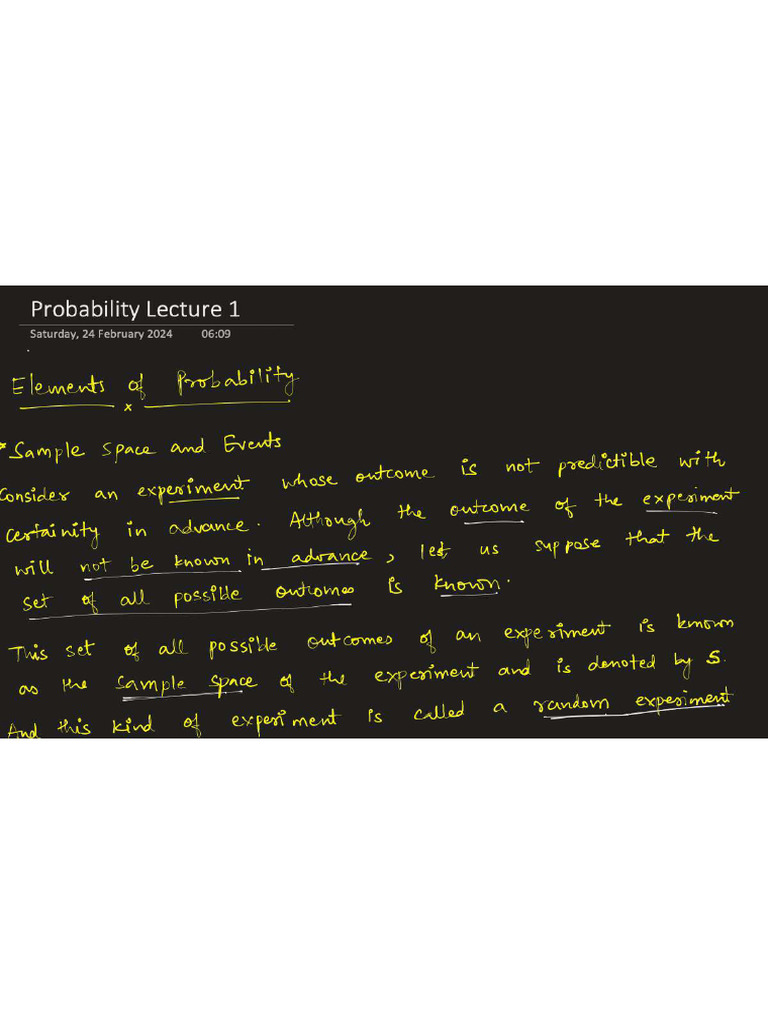 Probability Lecture 1
Saturday, 24 February 2024 06:09
Elements of Probability
x
* Sample space and Events
Consider an experiment whose outcome is not predictible with
certainity in advance. Although the outcome of the experiment
will not be known in advance, let us suppose that the
set of all possible outcomes is known.
This set of all possible outcomes of an experiment is known
as the sample space of the experiment and is denoted by S.
And this kind of experiment is called a random experiment